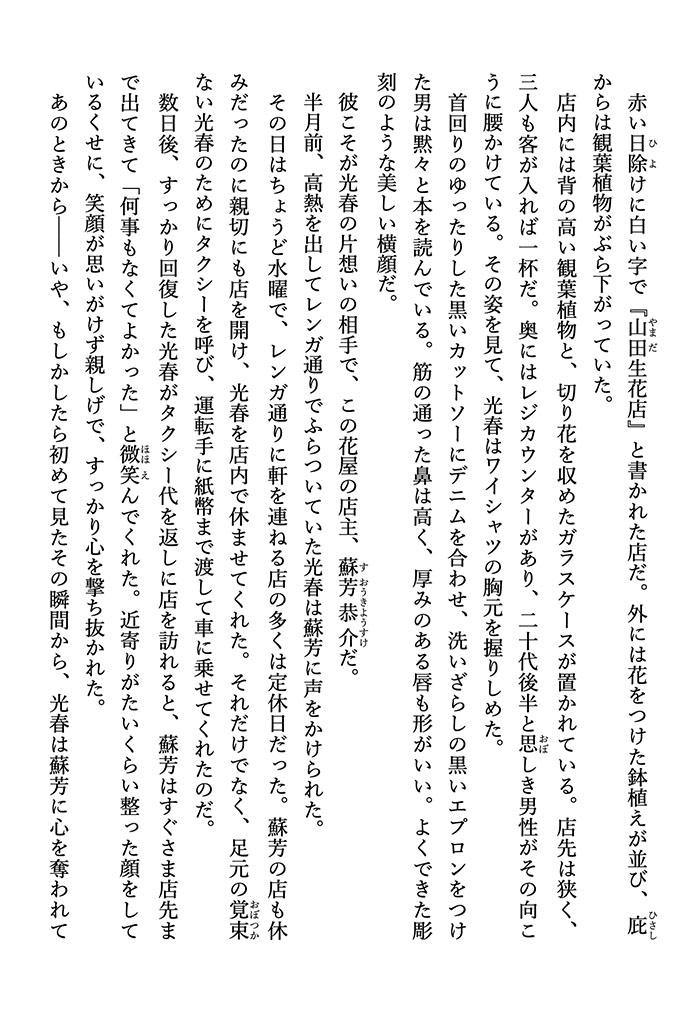 赤い日除けに白い字で『山田生花店』と書かれた店だ。外には花をつけた鉢植えが並び、庇
からは観葉植物がぶら下がっていた。
店内には背の高い観葉植物と、切り花を収めたガラスケースが置かれている。店先は狭く、
三人も客が入れば一杯だ。奥にはレジカウンターがあり、二十代後半と思しき男性がその向こ
うに腰かけている。その姿を見て、光春はワイシャツの胸元を握りしめた。
首回りのゆったりした黒いカットソーにデニムを合わせ、洗いざらしの黒いエプロンをつけ
た男は黙々と本を読んでいる。筋の通った鼻は高く、厚みのある唇も形がいい。よくできた彫
刻のような美しい横顔だ。
彼こそが光春の片想いの相手で、この花屋の店主、蘇芳恭介だ。
半月前、高熱を出してレンガ通りでふらついていた光春は蘇芳に声をかけられた。
その日はちょうど水曜で、レンガ通りに軒を連ねる店の多くは定休日だった。蘇芳の店も休
みだったのに親切にも店を開け、光春を店内で休ませてくれた。それだけでなく、足元の覚束
ない光春のためにタクシーを呼び、運転手に紙幣まで渡して車に乗せてくれたのだ。
数日後、すっかり回復した光春がタクシー代を返しに店を訪れると、蘇芳はすぐさま店先ま
で出てきて「何事もなくてよかった」と微笑んでくれた。近寄りがたいくらい整った顔をして
いるくせに、笑顔が思いがけず親しげで、すっかり心を撃ち抜かれた。
あのときから――いや、もしかしたら初めて見たその瞬間から、光春は蘇芳に心を奪われて